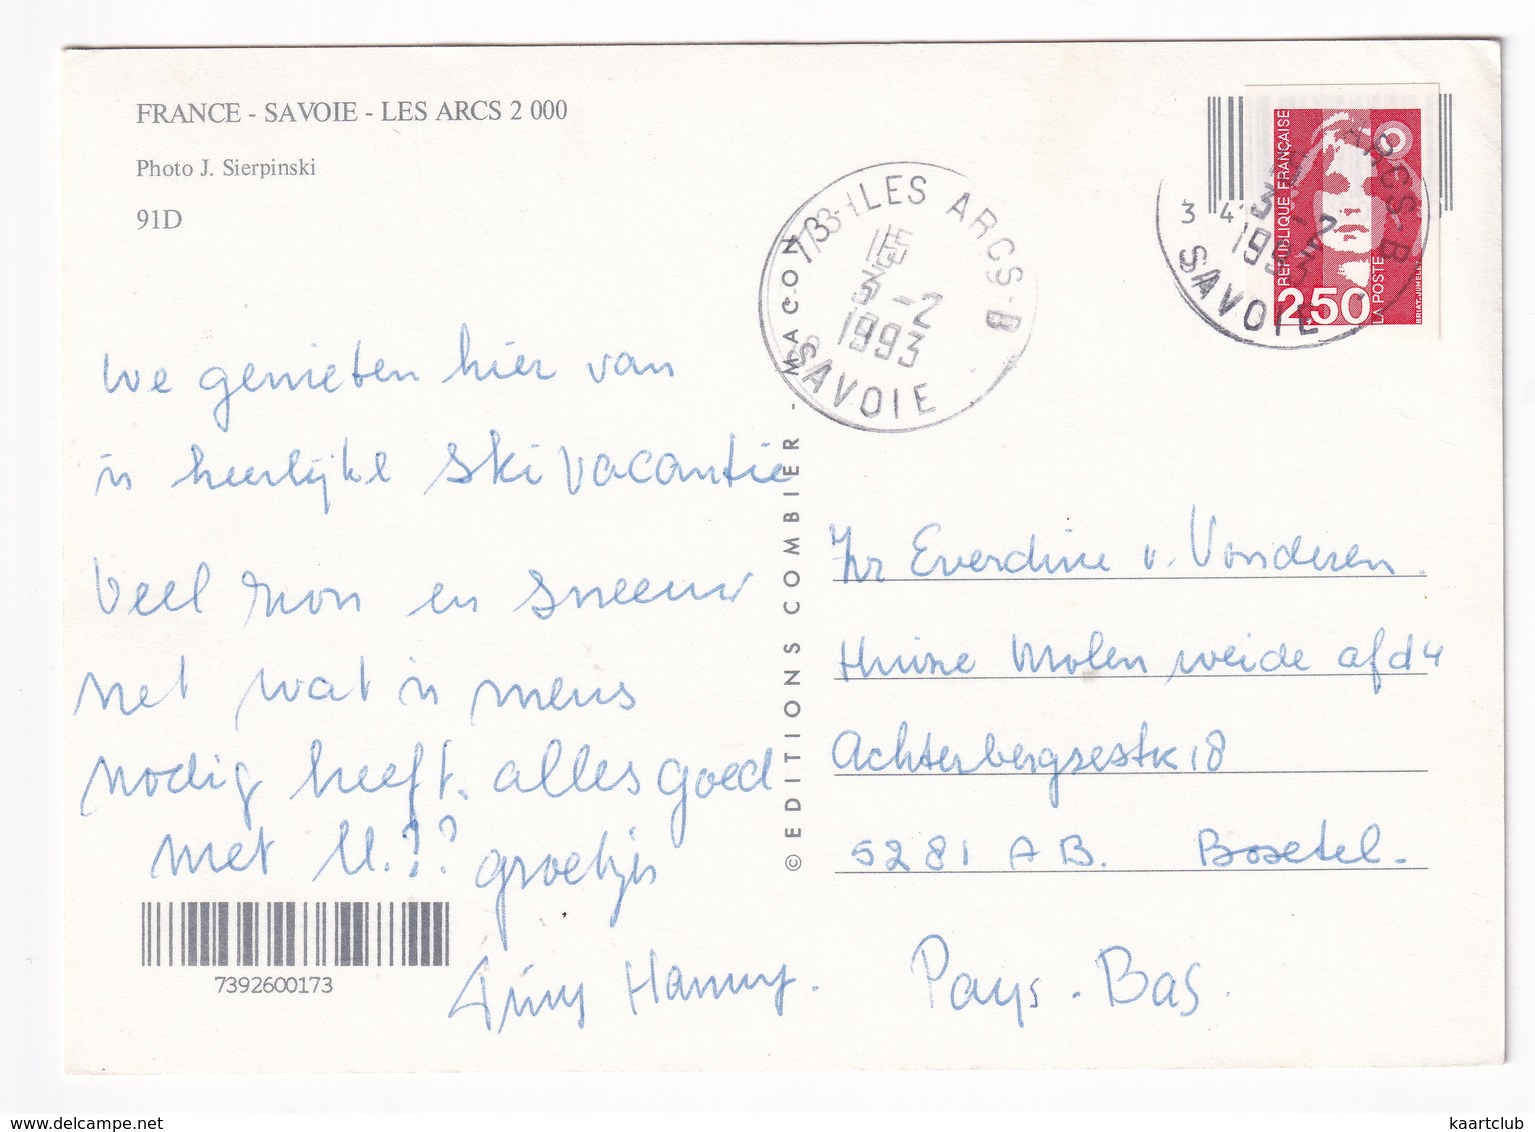 FRANCE - SAVOIE - LES ARCS 2 000
Photo J. Sierpinski
91D
we genieten hier van
'n heerlijke ski vacantie
Veel zon en sneeuw
net wat 'n mens
nodig heeft. alles goed
met U.?? groetjes
Hanny.
7392600173
© EDITIONS COMBIER - MACON
73-LES ARCS-B
16 H
3-2
1993
SAVOIE
RÉPUBLIQUE FRANÇAISE
2,50
LA POSTE
BRIAT-JUMELET
34
ARCS-B
3-2
1993
SAVOIE
Everdine v. Vonderen.
Huize Molenweide afd 4
Achterbergsestr 18
5281 AB. Boxtel.
Pays-Bas.
kaartclub
www.delcampe.net